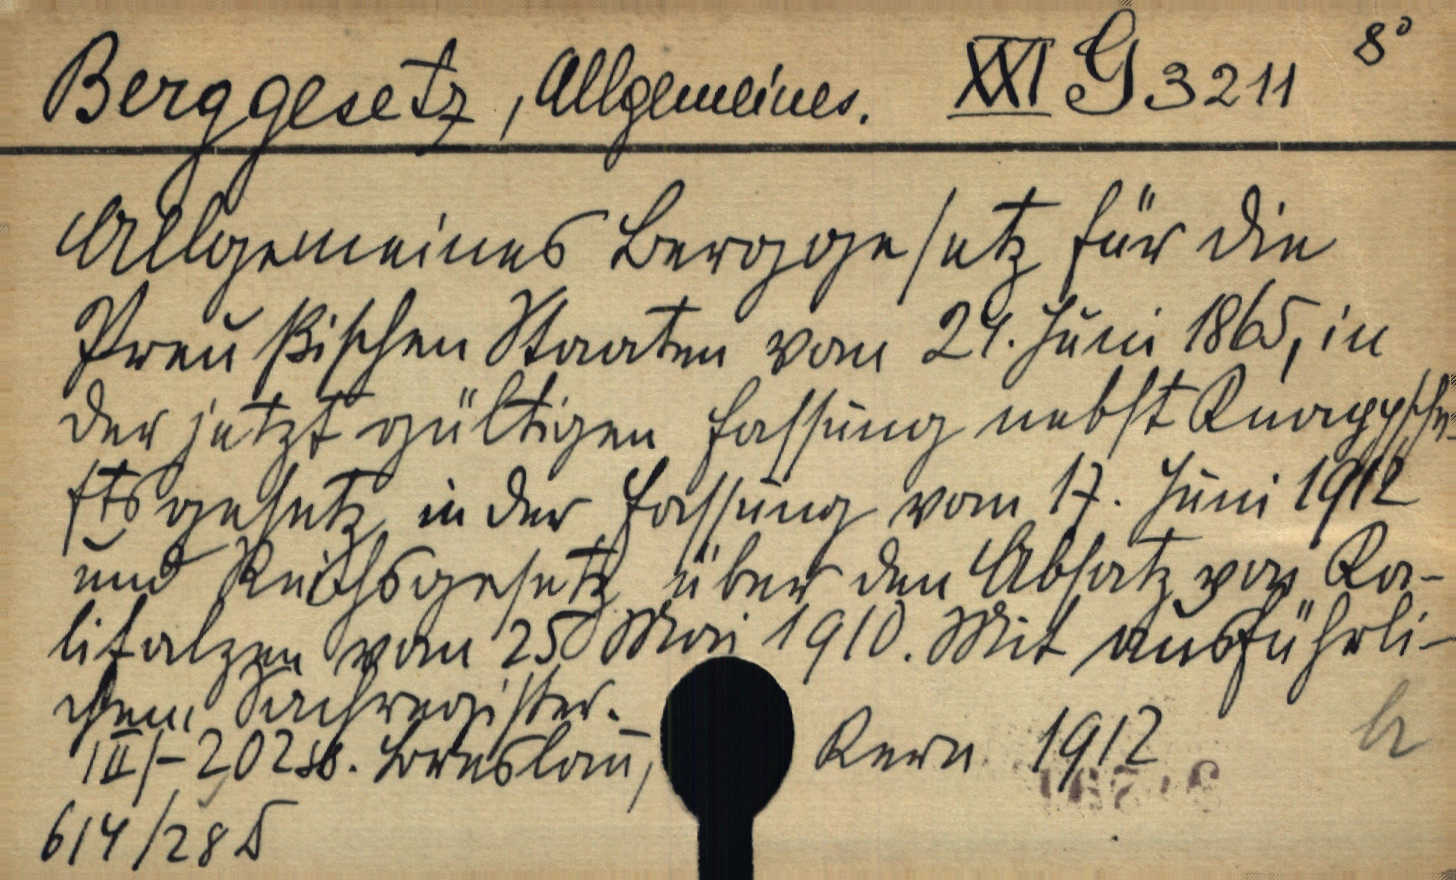 Berggesetz, Allgemeines. XXI G 3211 8°
Allgemeines Berggesetz für die
Preußischen Staaten vom 24. Juni 1865, in
der jetzt gültigen Fassung nebst Knappscha-
ftsgesetz in der Fassung vom 17. Juni 1912
und Reichsgesetz über den Absatz von Ka-
lisalzen vom 25. Mai 1910. Mit ausführli-
chem Sachregister.
III - 202 S. Breslau, Kern 1912
614/28